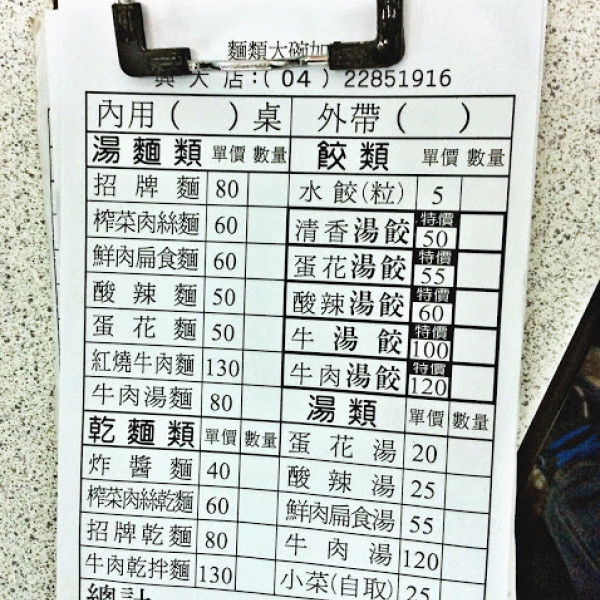 麵類大碗加
興大店：(04）22851916
內用（　）桌　外帶（　）
湯麵類 單價 數量
招牌麵 80
榨菜肉絲麵 60
鮮肉扁食麵 60
酸辣麵 50
蛋花麵 50
紅燒牛肉麵 130
牛肉湯麵 80
乾麵類 單價 數量
炸醬麵 40
榨菜肉絲乾麵 60
招牌乾麵 80
牛肉乾拌麵 130
總計
餃類 單價 數量
水餃(粒) 5
清香湯餃 特價 50
蛋花湯餃 特價 55
酸辣湯餃 特價 60
牛湯餃 特價 100
牛肉湯餃 特價 120
湯類 單價 數量
蛋花湯 20
酸辣湯 25
鮮肉扁食湯 55
牛肉湯 120
小菜(自取) 25